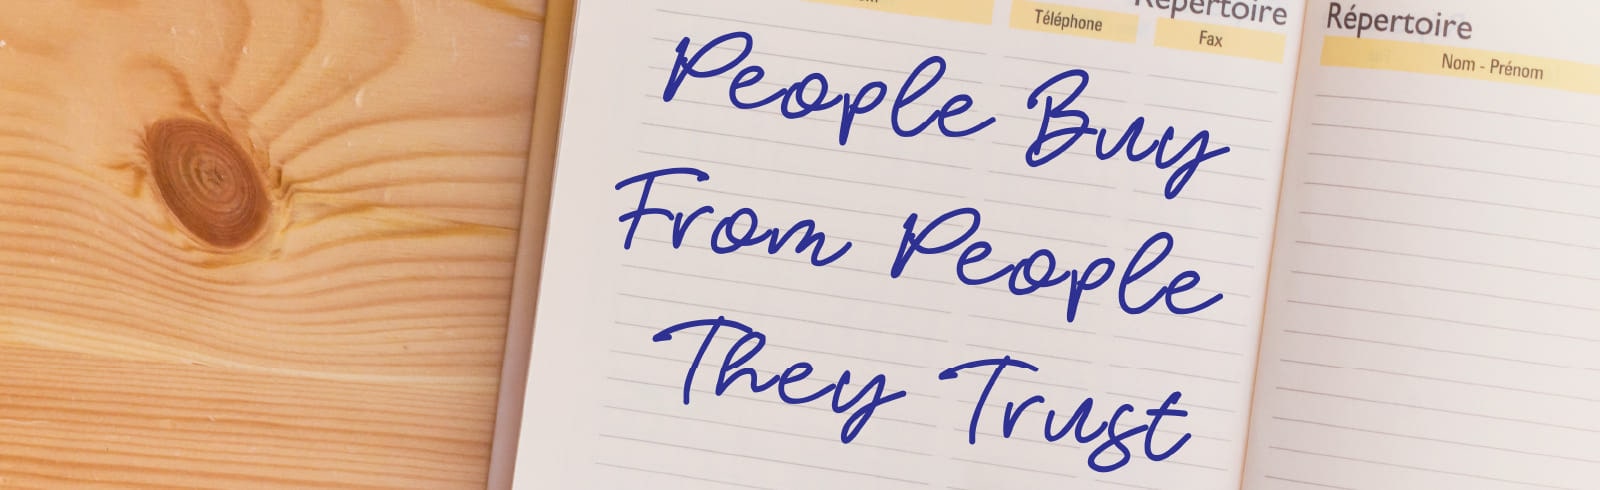 Répertoire
Téléphone
Fax
Répertoire
Nom - Prénom
People Buy
From People
They Trust